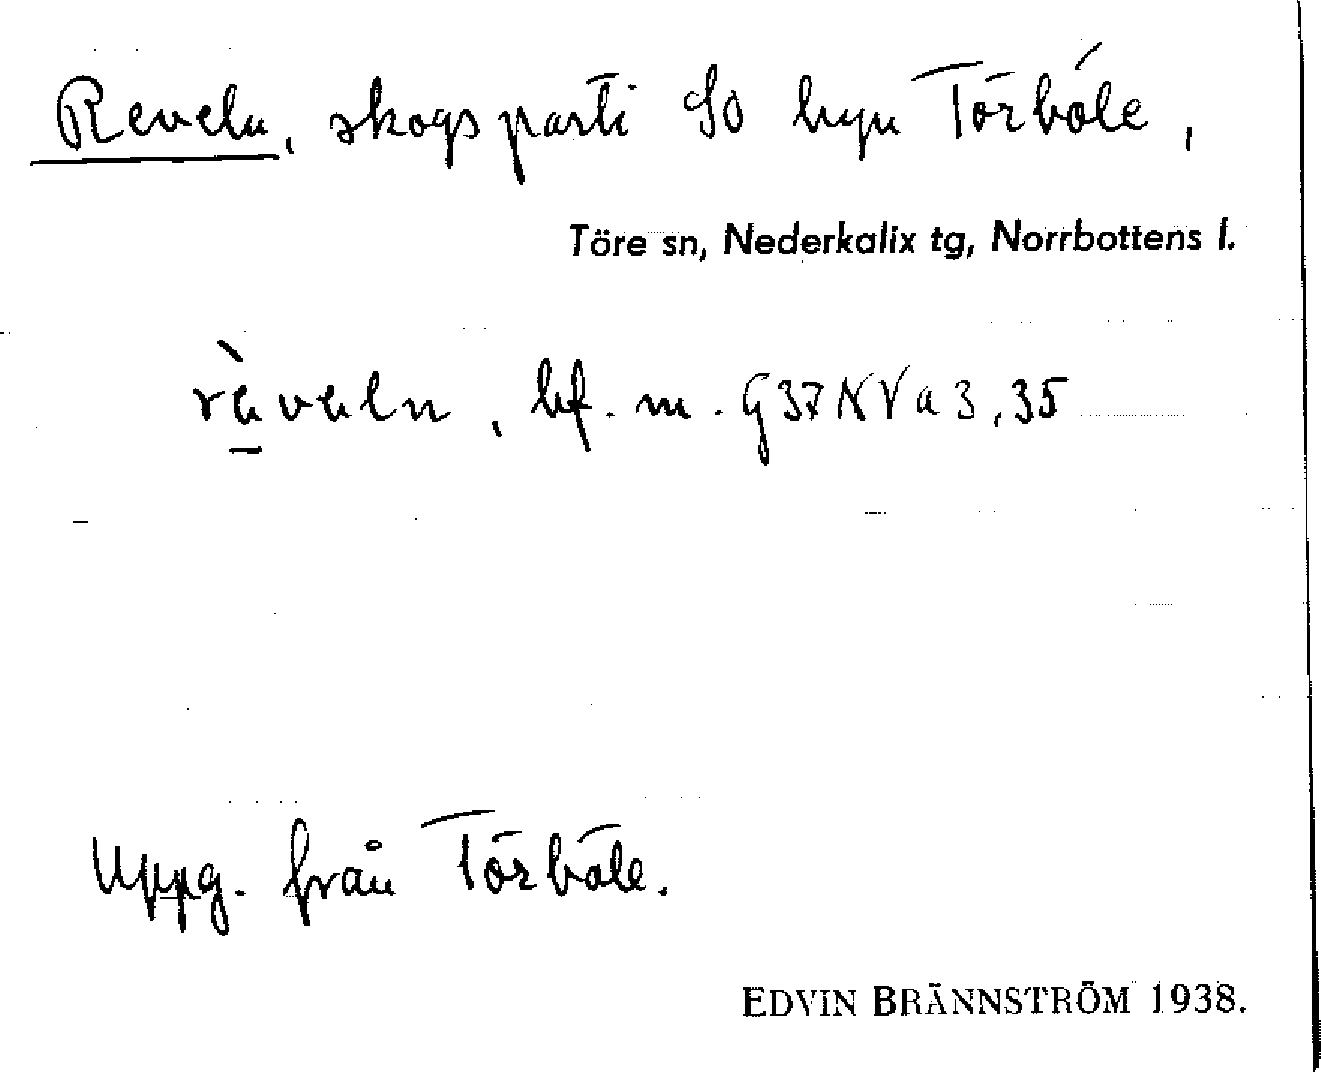 Reveln, skogsparti SO byn Törböle,
Töre sn, Nederkalix tg, Norrbottens l.
rèveln, bf. m. G37NVa3,35
Uppg. från Törböle.
EDVIN BRÄNNSTRÖM 1938.